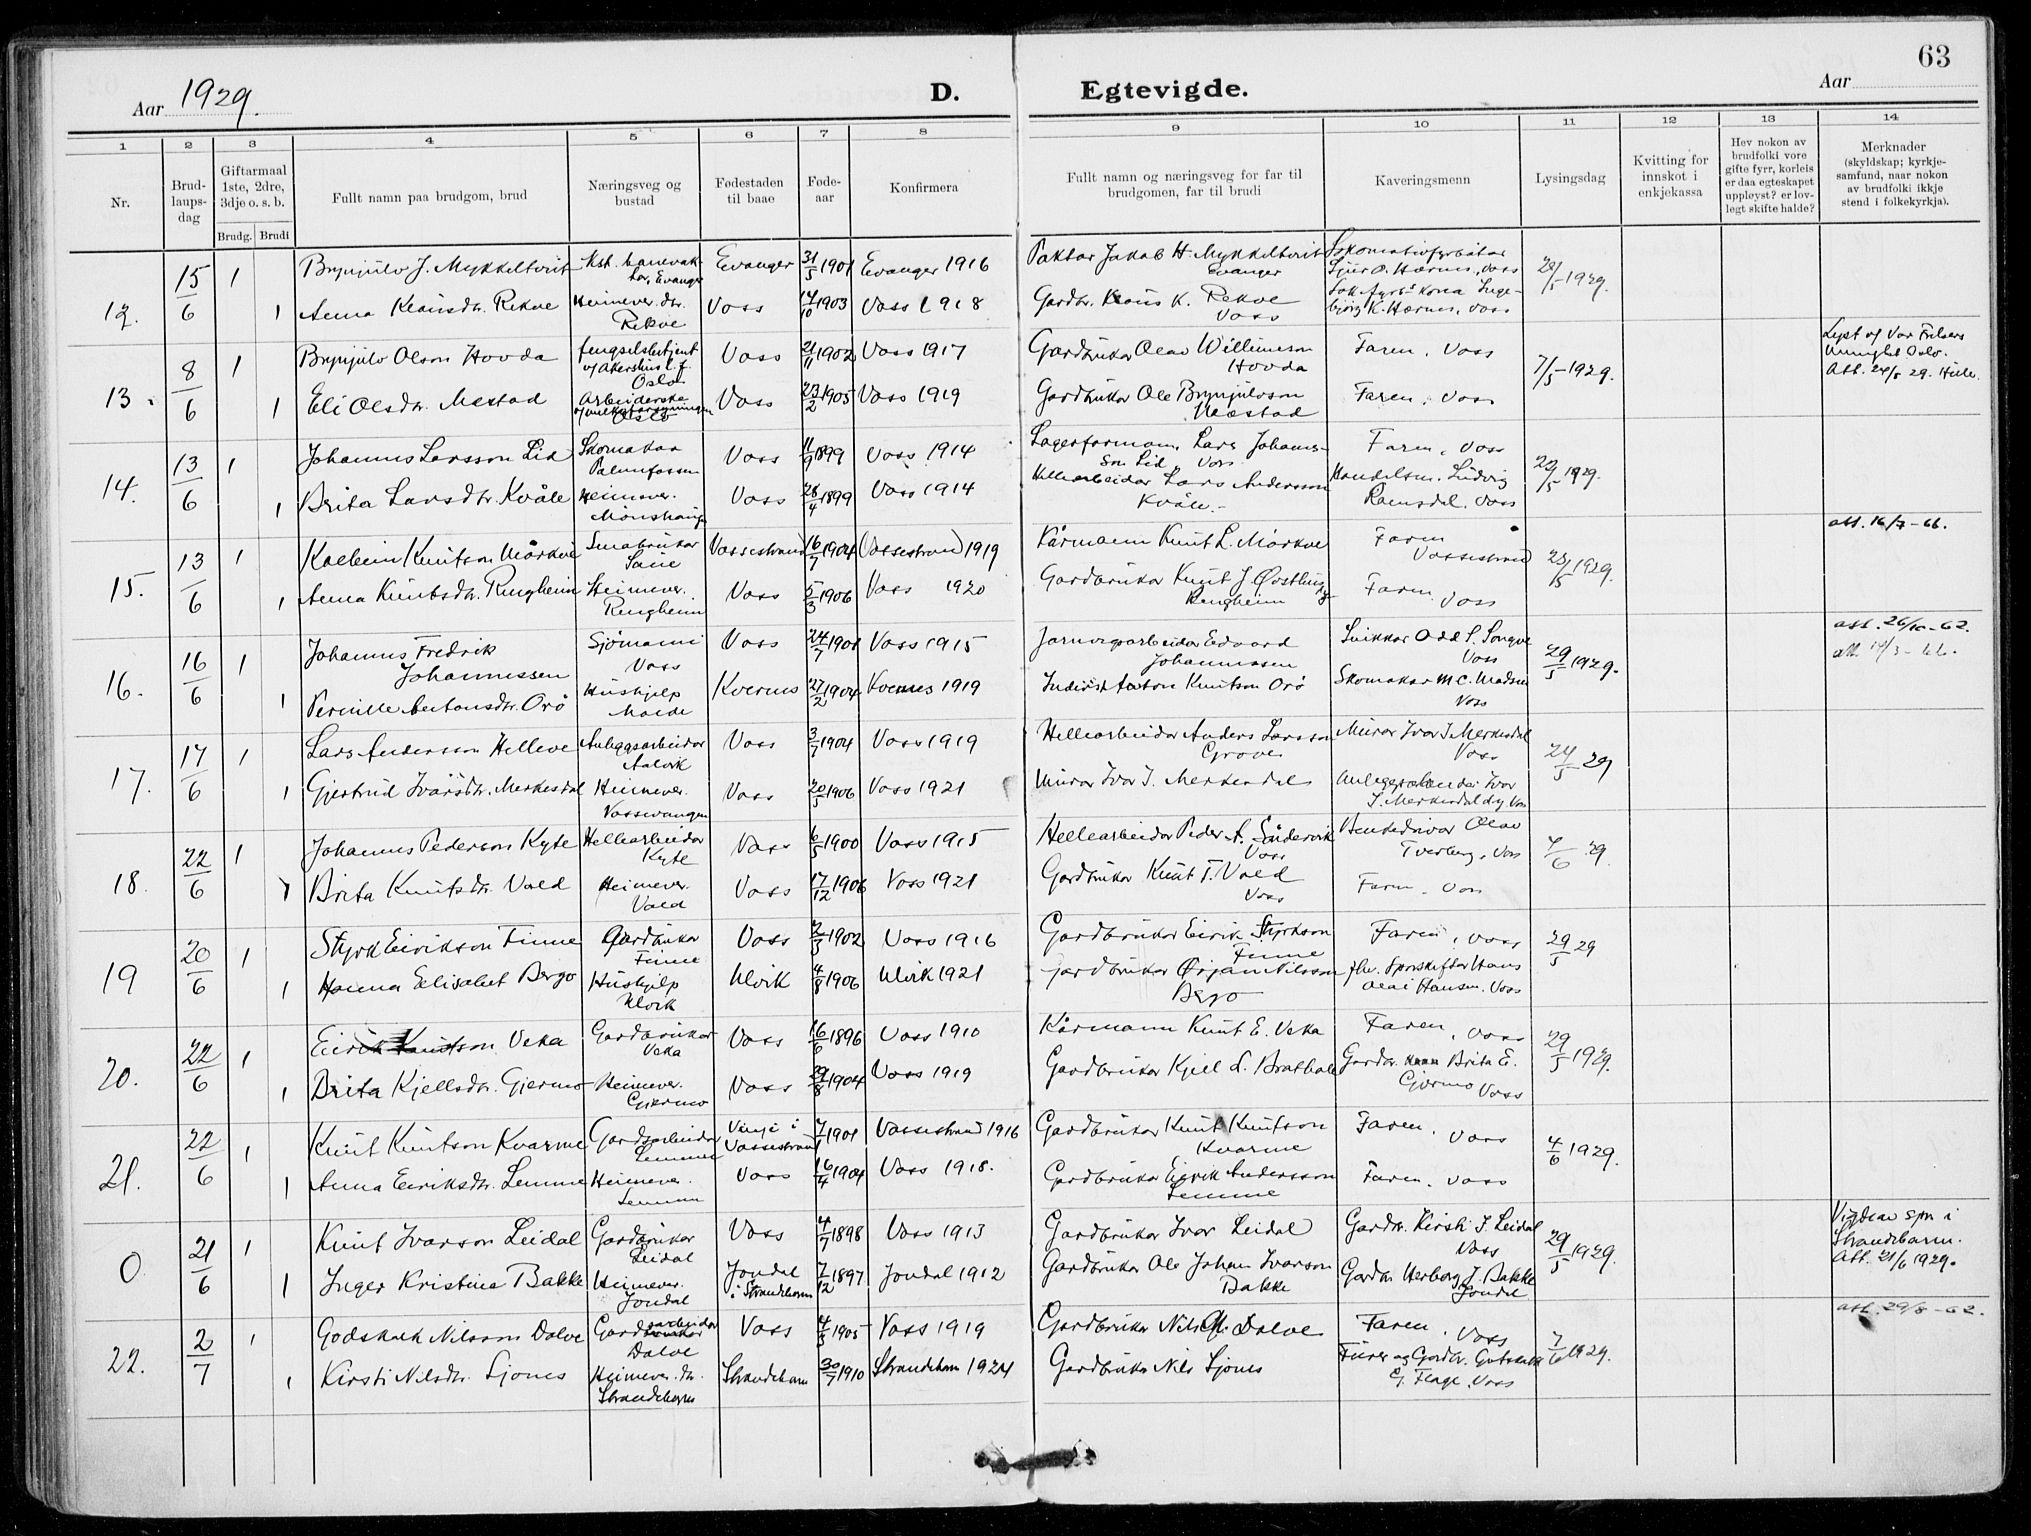 63
Aar 1929.
D. Egtevigde.
Aar
1 2 3 4 5 6 7 8 9 10 11 12 13 14
Nr.
Brud-
laups-
dag
Giftarmaal
1ste, 2dre,
3dje o. s. b.
Brudg. Brudi
Fullt namn paa brudgom, brud
Næringsveg og
bustad
Fødestaden
til baae
Føde-
aar
Konfirmera
Fullt namn og næringsveg for far til
brudgomen, far til brudi
Kaveringsmenn
Lysingsdag
Kvitting for
innskot i
enkjekassa
Hev nokon av
brudfolki vore
gifte fyrr, korleis
er daa egteskapet
uppløyst? er lov-
legt skifte halde?
Merknader
(skyldskap; kyrkje-
samfund, naar nokon
av brudfolki ikkje
stend i folkekyrkja).
12. 15/6 1 Brynjulv J. Mykkeltveit Evanger 31/5 1901 Evanger 1916 Jakob H. Mykkeltveit Evanger Lokomotivfyrbøtar Sjur O. Hærnes, Voss 28/5-1929.
1 Anna Klausdtr. Rekve Heimever. dtr. Rekve Voss 14/10 1903 Voss 1918 Gardbr. Klaus K. Rekve Voss Lok.fyrb. kona Inge-
bjørg K. Hærnes, Voss
13. 8/6 1 Brynjulv Olson Hovda fengselsbetjent v/ Akershus l.f. Oslo Voss 21/11 1902 Voss 1917 Gardbrukar Olav Willumson Hovda Faren, Voss 7/5-1929. Lyst v/ Vor Frelsers Oslo. Att. 24/5 29.
1 Eli Olsdtr. Mestad Arbeiderske Oslo Voss 23/2 1905 Voss 1919 Gardbrukar Ole Brynjulvson Mæstad Faren, Voss
14. 13/6 1 Johannes Larsson Lid Skomakar Palmafossen Voss 11/9 1899 Voss 1914 Lagerformann Lars Johannes-
son Lid, Voss Faren, Voss 22/5 1929.
1 Brita Larsdtr. Kvåle Heimever. Mønshaugen Voss 28/4 1899 Voss 1914 Hellearbeidar Lars Andersson Kvåle.- Handelsm. Ludvig Ramsdal, Voss
15. 13/6 1 Kolbein Knutson Mørkve Småbrukar Saue Vossestrand 16/7 1904 Vossestrand 1919 Kårmann Knut L. Mørkve Faren Vossestrand 23/5 1929. att. 16/7-66.
1 Anna Knutsdtr. Rengheim Heimever. Rengheim Voss 5/3 1906 Voss 1920 Gardbrukar Knut J. Østhus Rengheim Faren, Voss
16. 16/6 1 Johannes Fredrik Johannessen Sjømann Voss Voss 24/7 1901 Voss 1915 Jarnvegsarbeidar Edvard Johannessen Snikkar Odd S. Songve Voss 29/5 1929. att. 26/10-62.
att. 14/3-66.
1 Pernille Antonsdtr. Orø Hushjelp Molde Kvernes 27/2 1904 Kvernes 1919 Inderst Anton Knutson Orø Skomakar M.C. Madsen Voss
17. 17/6 1 Lars Andersson Helleve Anleggsarbeidar Aalvik Voss 3/7 1904 Voss 1919 Hellearbeidar Anders Larsson Grove Murar Ivar I. Merkesdal Voss 24/5-29
1 Gjertrud Ivarsdtr. Merkesdal Heimever. Vossevangen Voss 20/5 1906 Voss 1921 Murar Ivar I. Merkesdal Anleggsarbeidar Ivar I. Merkesdal d.y. Voss
18. 22/6 1 Johannes Pederson Kyte Hellearbeidar Kyte Voss 6/5 1900 Voss 1915 Hellearbeidar Peder A. Sundervik Voss Olav Tverberg, Voss 4/6 29.
1 Brita Knutsdtr. Vold Heimever. Vold Voss 17/12 1906 Voss 1921 Gardbrukar Knut T. Vold Voss Faren, Voss
19 20/6 1 Styrk Eirikson Finne Gardbrukar Finne Voss 2/5 1902 Voss 1916 Gardbrukar Eirik Styrkson Finne Faren, Voss 29/5 29
1 Hanna Elisabet Bergo Hushjelp Ulvik Ulvik 4/8 1906 Ulvik 1921 Gardbrukar Ørjan Nilsson Bergo Hans Olai Hansen, Voss
20. 22/6 1 Eirik Knutson Veka Gardbrukar Veka Voss 16/6 1896 Voss 1910 Kårmann Knut E. Veka Faren, Voss 29/5 1929.
1 Brita Kjellsdtr. Gjermo Heimever. Gjermo Voss 29/8 1904 Voss 1919 Gardbrukar Kjell L. Brathole Gardbr. Brita E. Gjermo Voss
21. 22/6 1 Knut Knutson Kvarme Gardsarbeidar Lemme Vinje i Vossestrand 7/1 1901 Vossestrand 1916 Gardbrukar Knut Knutson Kvarme Faren, Voss 4/6 1929.
1 Anna Eiriksdtr. Lemme Heimever. Lemme Voss 16/4 1904 Voss 1918. Gardbrukar Eirik Andersson Lemme Faren, Voss
0 21/6 1 Knut Ivarson Leidal Gardbrukar Leidal Voss 4/7 1898 Voss 1913 Gardbrukar Ivar Leidal Gardbr. Kirsti I. Leidal Voss 29/5 1929. Vigde av spr. i
Strandebarm.
Att. 21/6 1929.
1 Inger Kristine Bakke Heimever. Jondal Jondal i Strandebarm 7/12 1897 Jondal 1912 Gardbrukar Ole Johan Ivarson Bakke Gardbr. Herborg J. Bakke Jondal
22. 2/7 1 Godskalk Nilsson Dolve Gardsarbeidar Dolve Voss 4/5 1905 Voss 1919 Gardbrukar Nils G. Dolve Faren, Voss 7/6 1929. att. 29/8-62.
1 Kirsti Nilsdtr. Sjones Heimever. dtr. Strandebarm Strandebarm 30/7 1910 Strandebarm 1924 Gardbrukar Nils Sjones og Gardbr. Gotskalk G. Flage, Voss